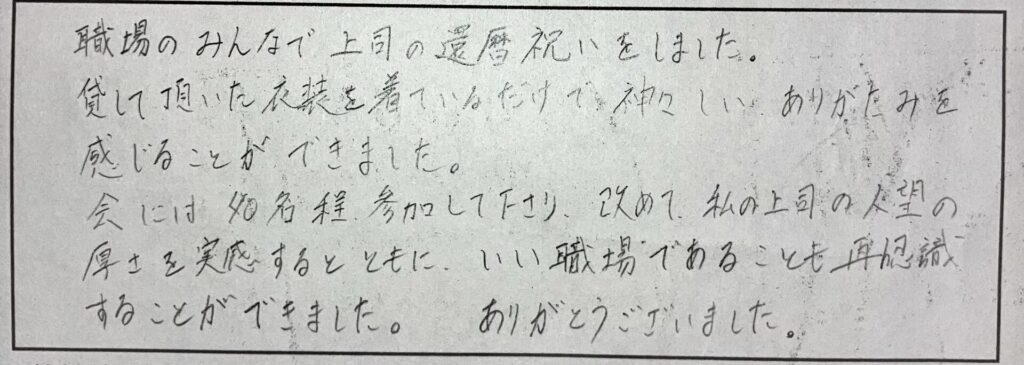 職場のみんなで上司の還暦祝いをしました。
貸して頂いた衣装を着ているだけで神々しい、ありがたみを
感じることができました。
会には 名程、参加して下さり、改めて、私の上司の人望の
厚さを実感するとともに、いい職場であることも再認識
することができました。 ありがとうございました。